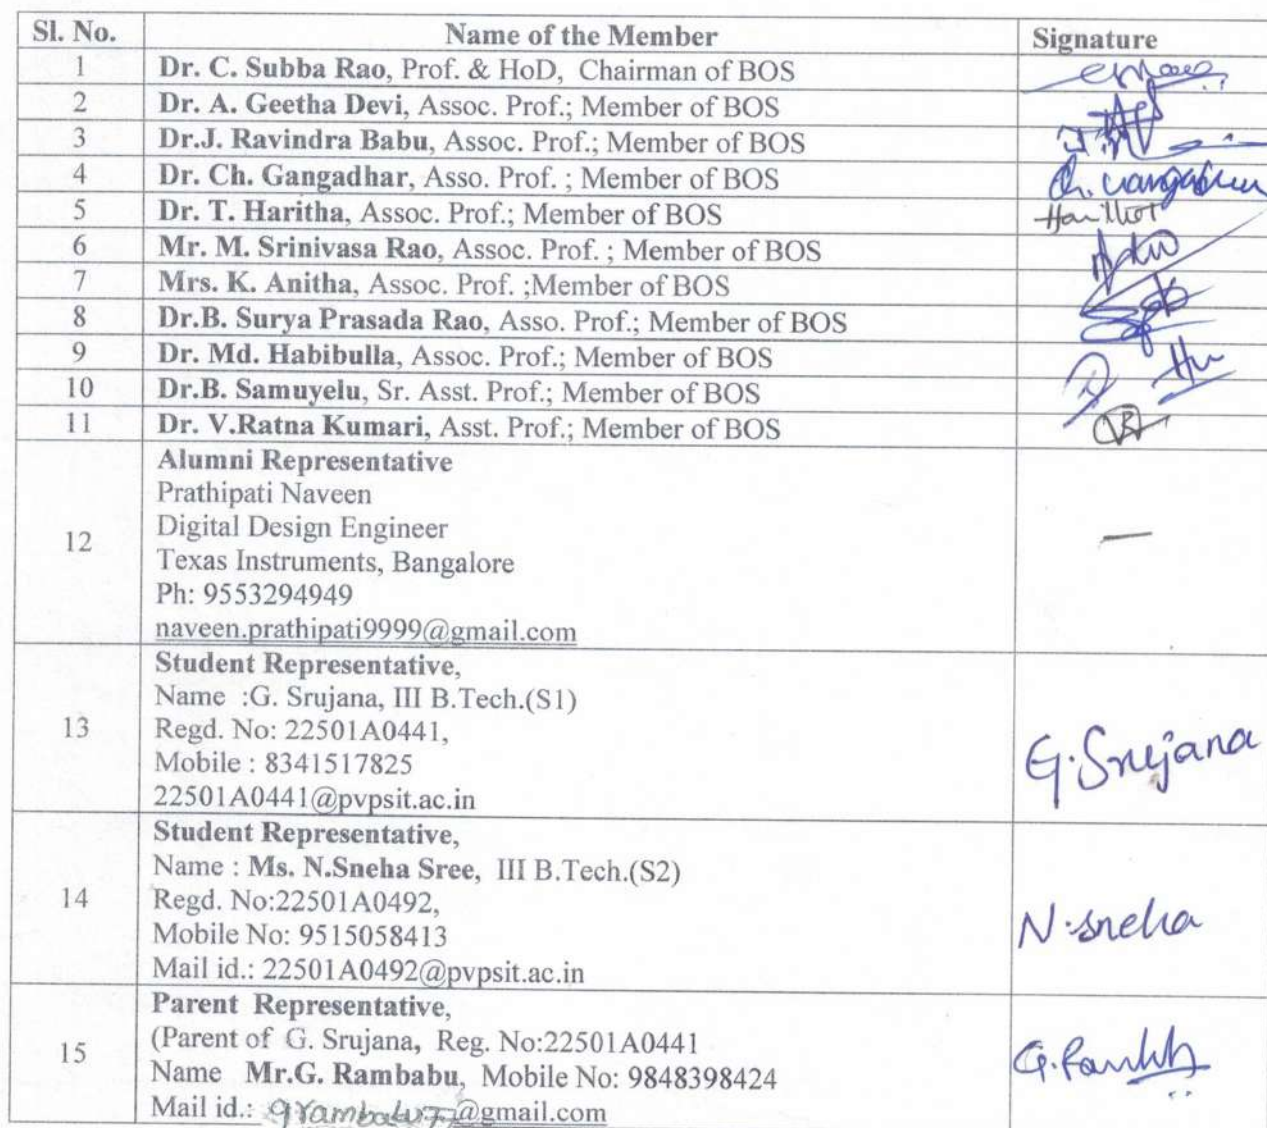 Sl. No. Name of the Member Signature
1 Dr. C. Subba Rao, Prof. & HoD, Chairman of BOS
2 Dr. A. Geetha Devi, Assoc. Prof.; Member of BOS
3 Dr.J. Ravindra Babu, Assoc. Prof.; Member of BOS
4 Dr. Ch. Gangadhar, Asso. Prof. ; Member of BOS
5 Dr. T. Haritha, Assoc. Prof.; Member of BOS
6 Mr. M. Srinivasa Rao, Assoc. Prof. ; Member of BOS
7 Mrs. K. Anitha, Assoc. Prof. ;Member of BOS
8 Dr.B. Surya Prasada Rao, Asso. Prof.; Member of BOS
9 Dr. Md. Habibulla, Assoc. Prof.; Member of BOS
10 Dr.B. Samuyelu, Sr. Asst. Prof.; Member of BOS
11 Dr. V.Ratna Kumari, Asst. Prof.; Member of BOS
Alumni Representative
Prathipati Naveen
Digital Design Engineer
12 —
Texas Instruments, Bangalore
Ph: 9553294949
naveen.prathipati9999@gmail.com
Student Representative,
Name :G. Srujana, III B.Tech.(S1)
13 Regd. No: 22501A0441,
Mobile : 8341517825 G.Srujana
22501A0441@pvpsit.ac.in
Student Representative,
Name : Ms. N.Sneha Sree, III B.Tech.(S2)
14 Regd. No:22501A0492, N.sneha
Mobile No: 9515058413
Mail id.: 22501A0492@pvpsit.ac.in
Parent Representative,
(Parent of G. Srujana, Reg. No:22501A0441
15 Name Mr.G. Rambabu, Mobile No: 9848398424
Mail id.: grambabu77@gmail.com